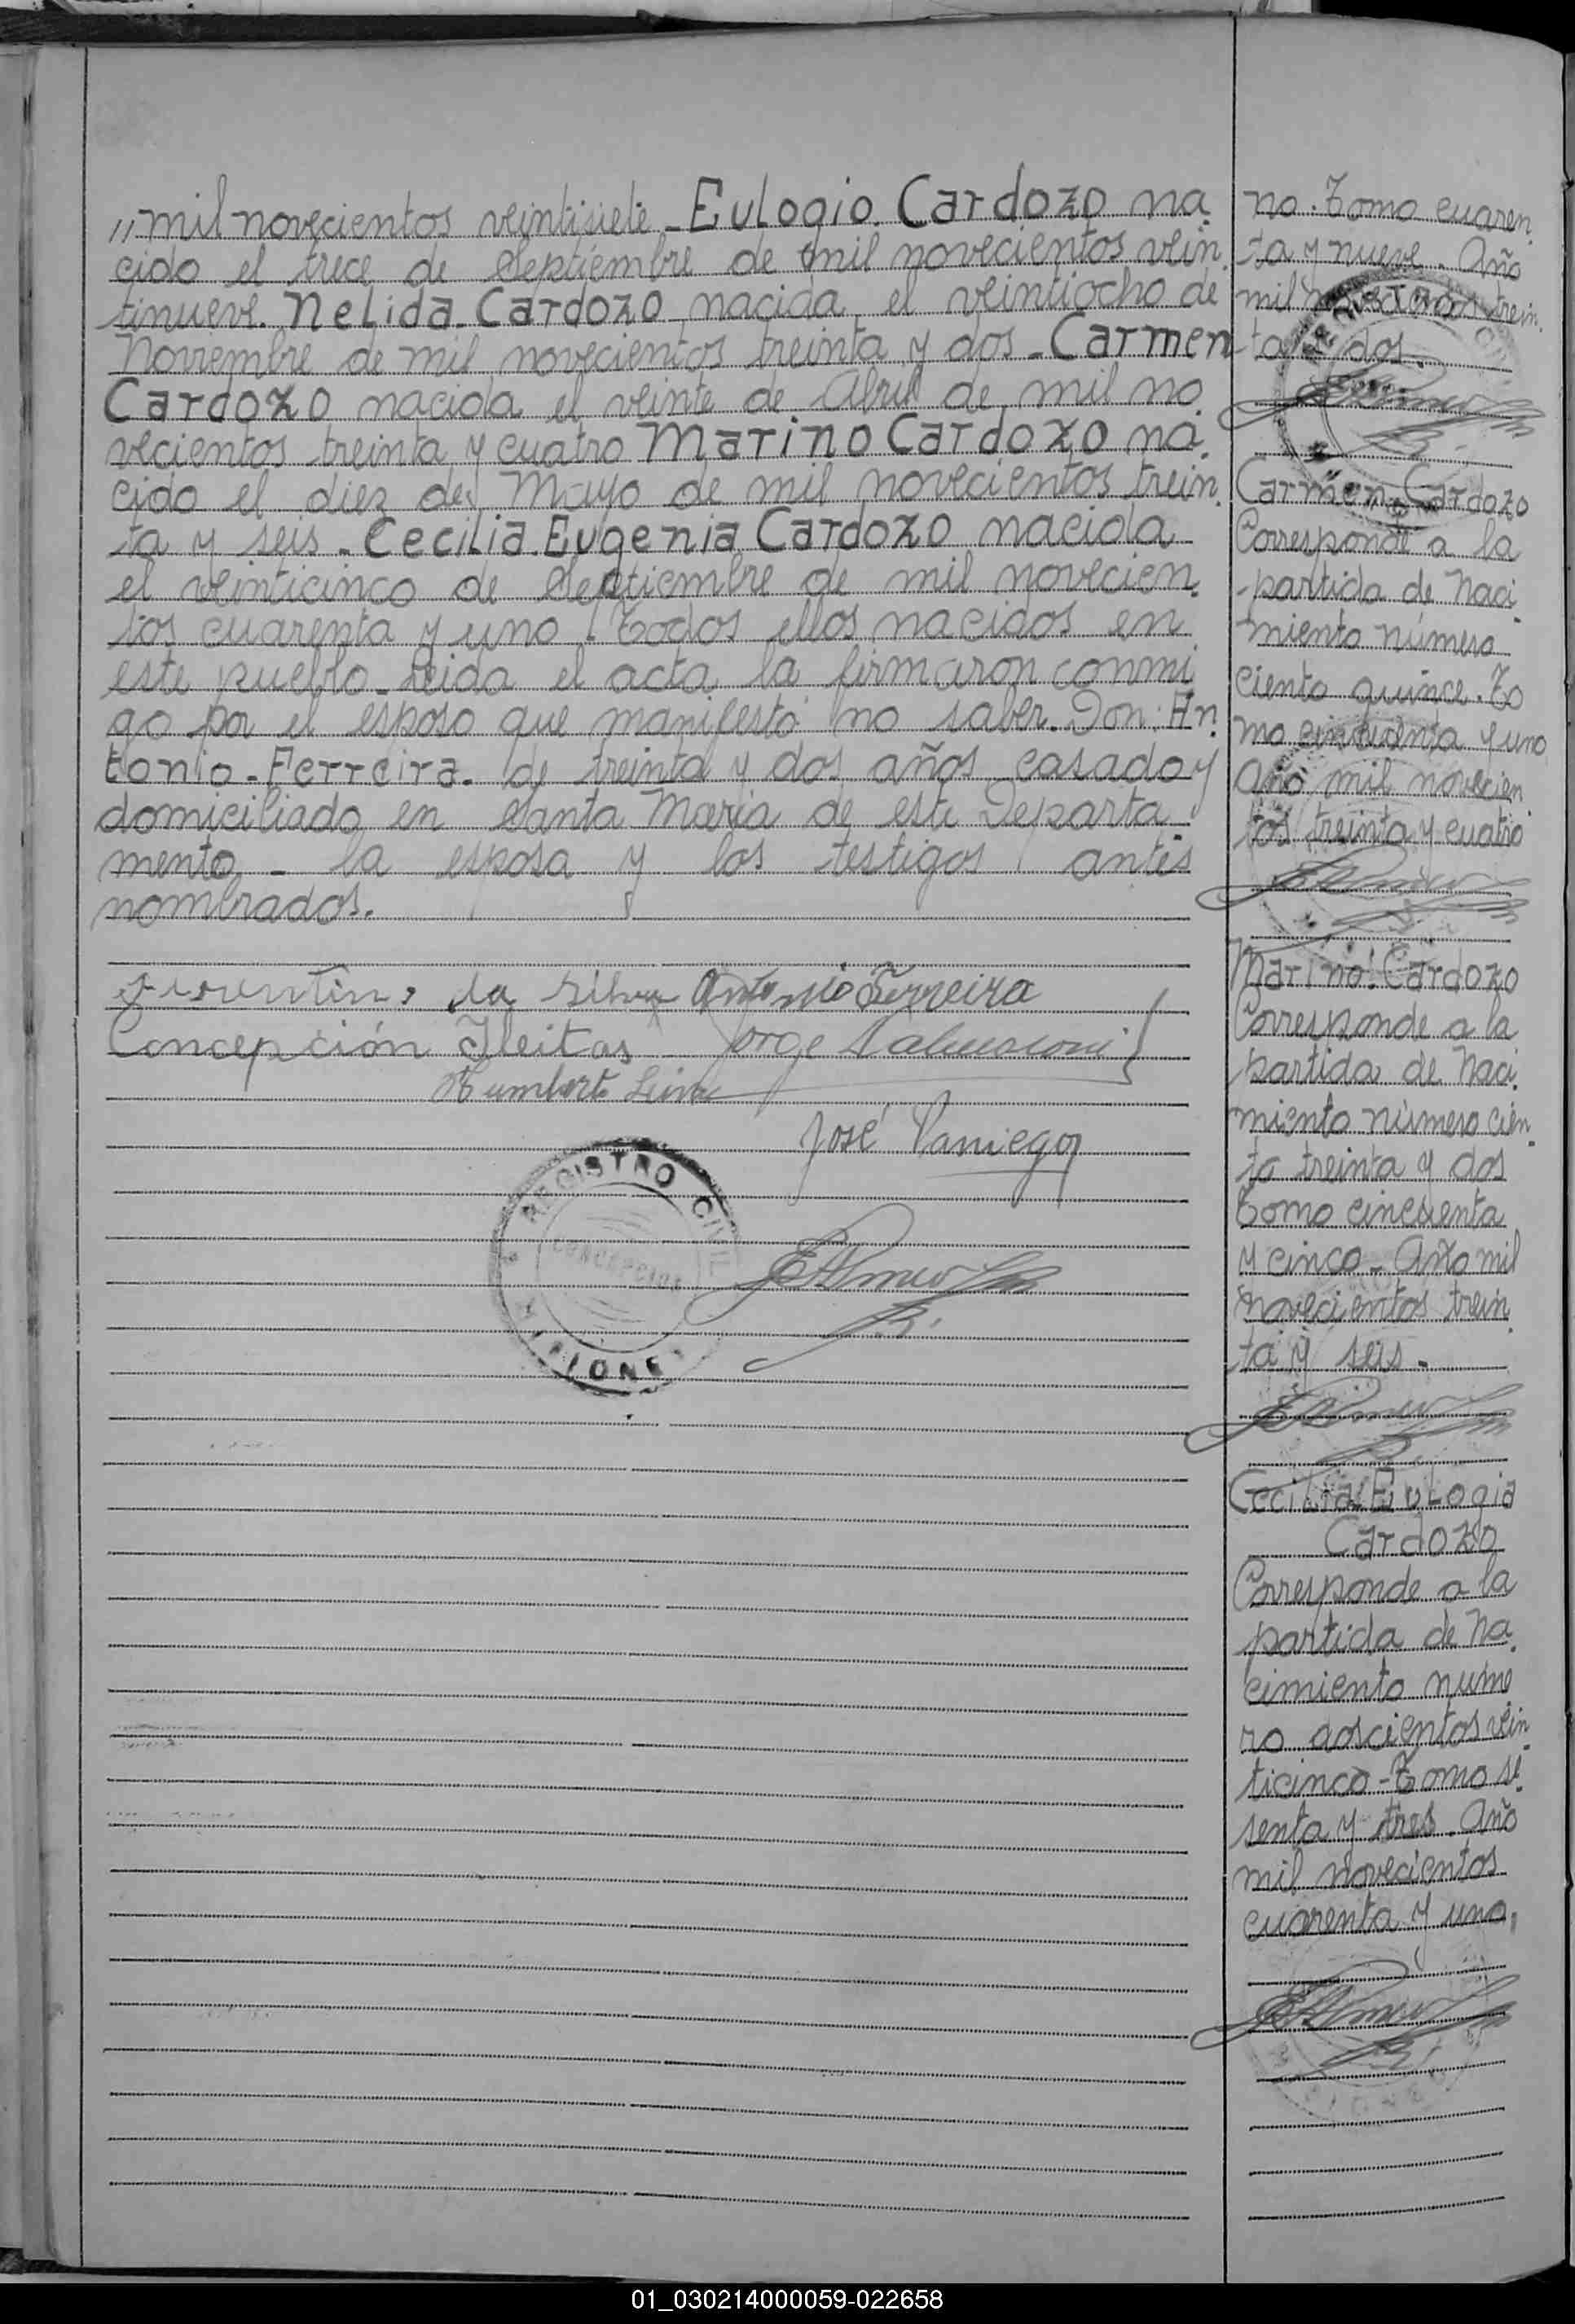 "mil novecientos veintisiete - Eulogio Cardozo na
cido el trece de Septiembre de mil novecientos vein
tinueve. Nelida Cardozo nacida el veintiocho de
Noviembre de mil novecientos treinta y dos - Carmen
Cardozo nacida el veinte de Abril de mil no
vecientos treinta y cuatro Marino Cardozo na
cido el diez de Mayo de mil novecientos trein
ta y seis - Cecilia Eugenia Cardozo nacida
el veinticinco de Septiembre de mil novecien
tos cuarenta y uno. Todos ellos nacidos en
este pueblo - Leida el acta la firmaron conmi
go por el esposo que manifestó no saber. Don: An
tonio - Ferreira. de treinta y dos años casado y
domiciliado en Santa Maria de este Departa
mento - la esposa y los testigos antes
nombrados.
da Silva Antonio Ferreira
Concepción Fleitas Jorge
Humberto
José Paniego
REGISTRO CIVIL
CONCEPCION
MISIONES
no. Tomo cuaren
ta y nueve. Año
mil novecientos trein
ta y dos.
Carmen Cardozo
Corresponde a la
partida de Naci
miento número
ciento quince. To
mo cincuenta y uno
Año mil novecien
tos treinta y cuatro
Marino: Cardozo
Corresponde a la
partida de Naci
miento número cien
to treinta y dos
Tomo cincuenta
y cinco - Año mil
novecientos trein
ta y seis -
Cecilia Eulogia
Cardozo
Corresponde a la
partida de Na
cimiento núme
ro doscientos vein
ticinco - Tomo se
senta y tres. Año
mil novecientos
cuarenta y uno.
01_030214000059-022658